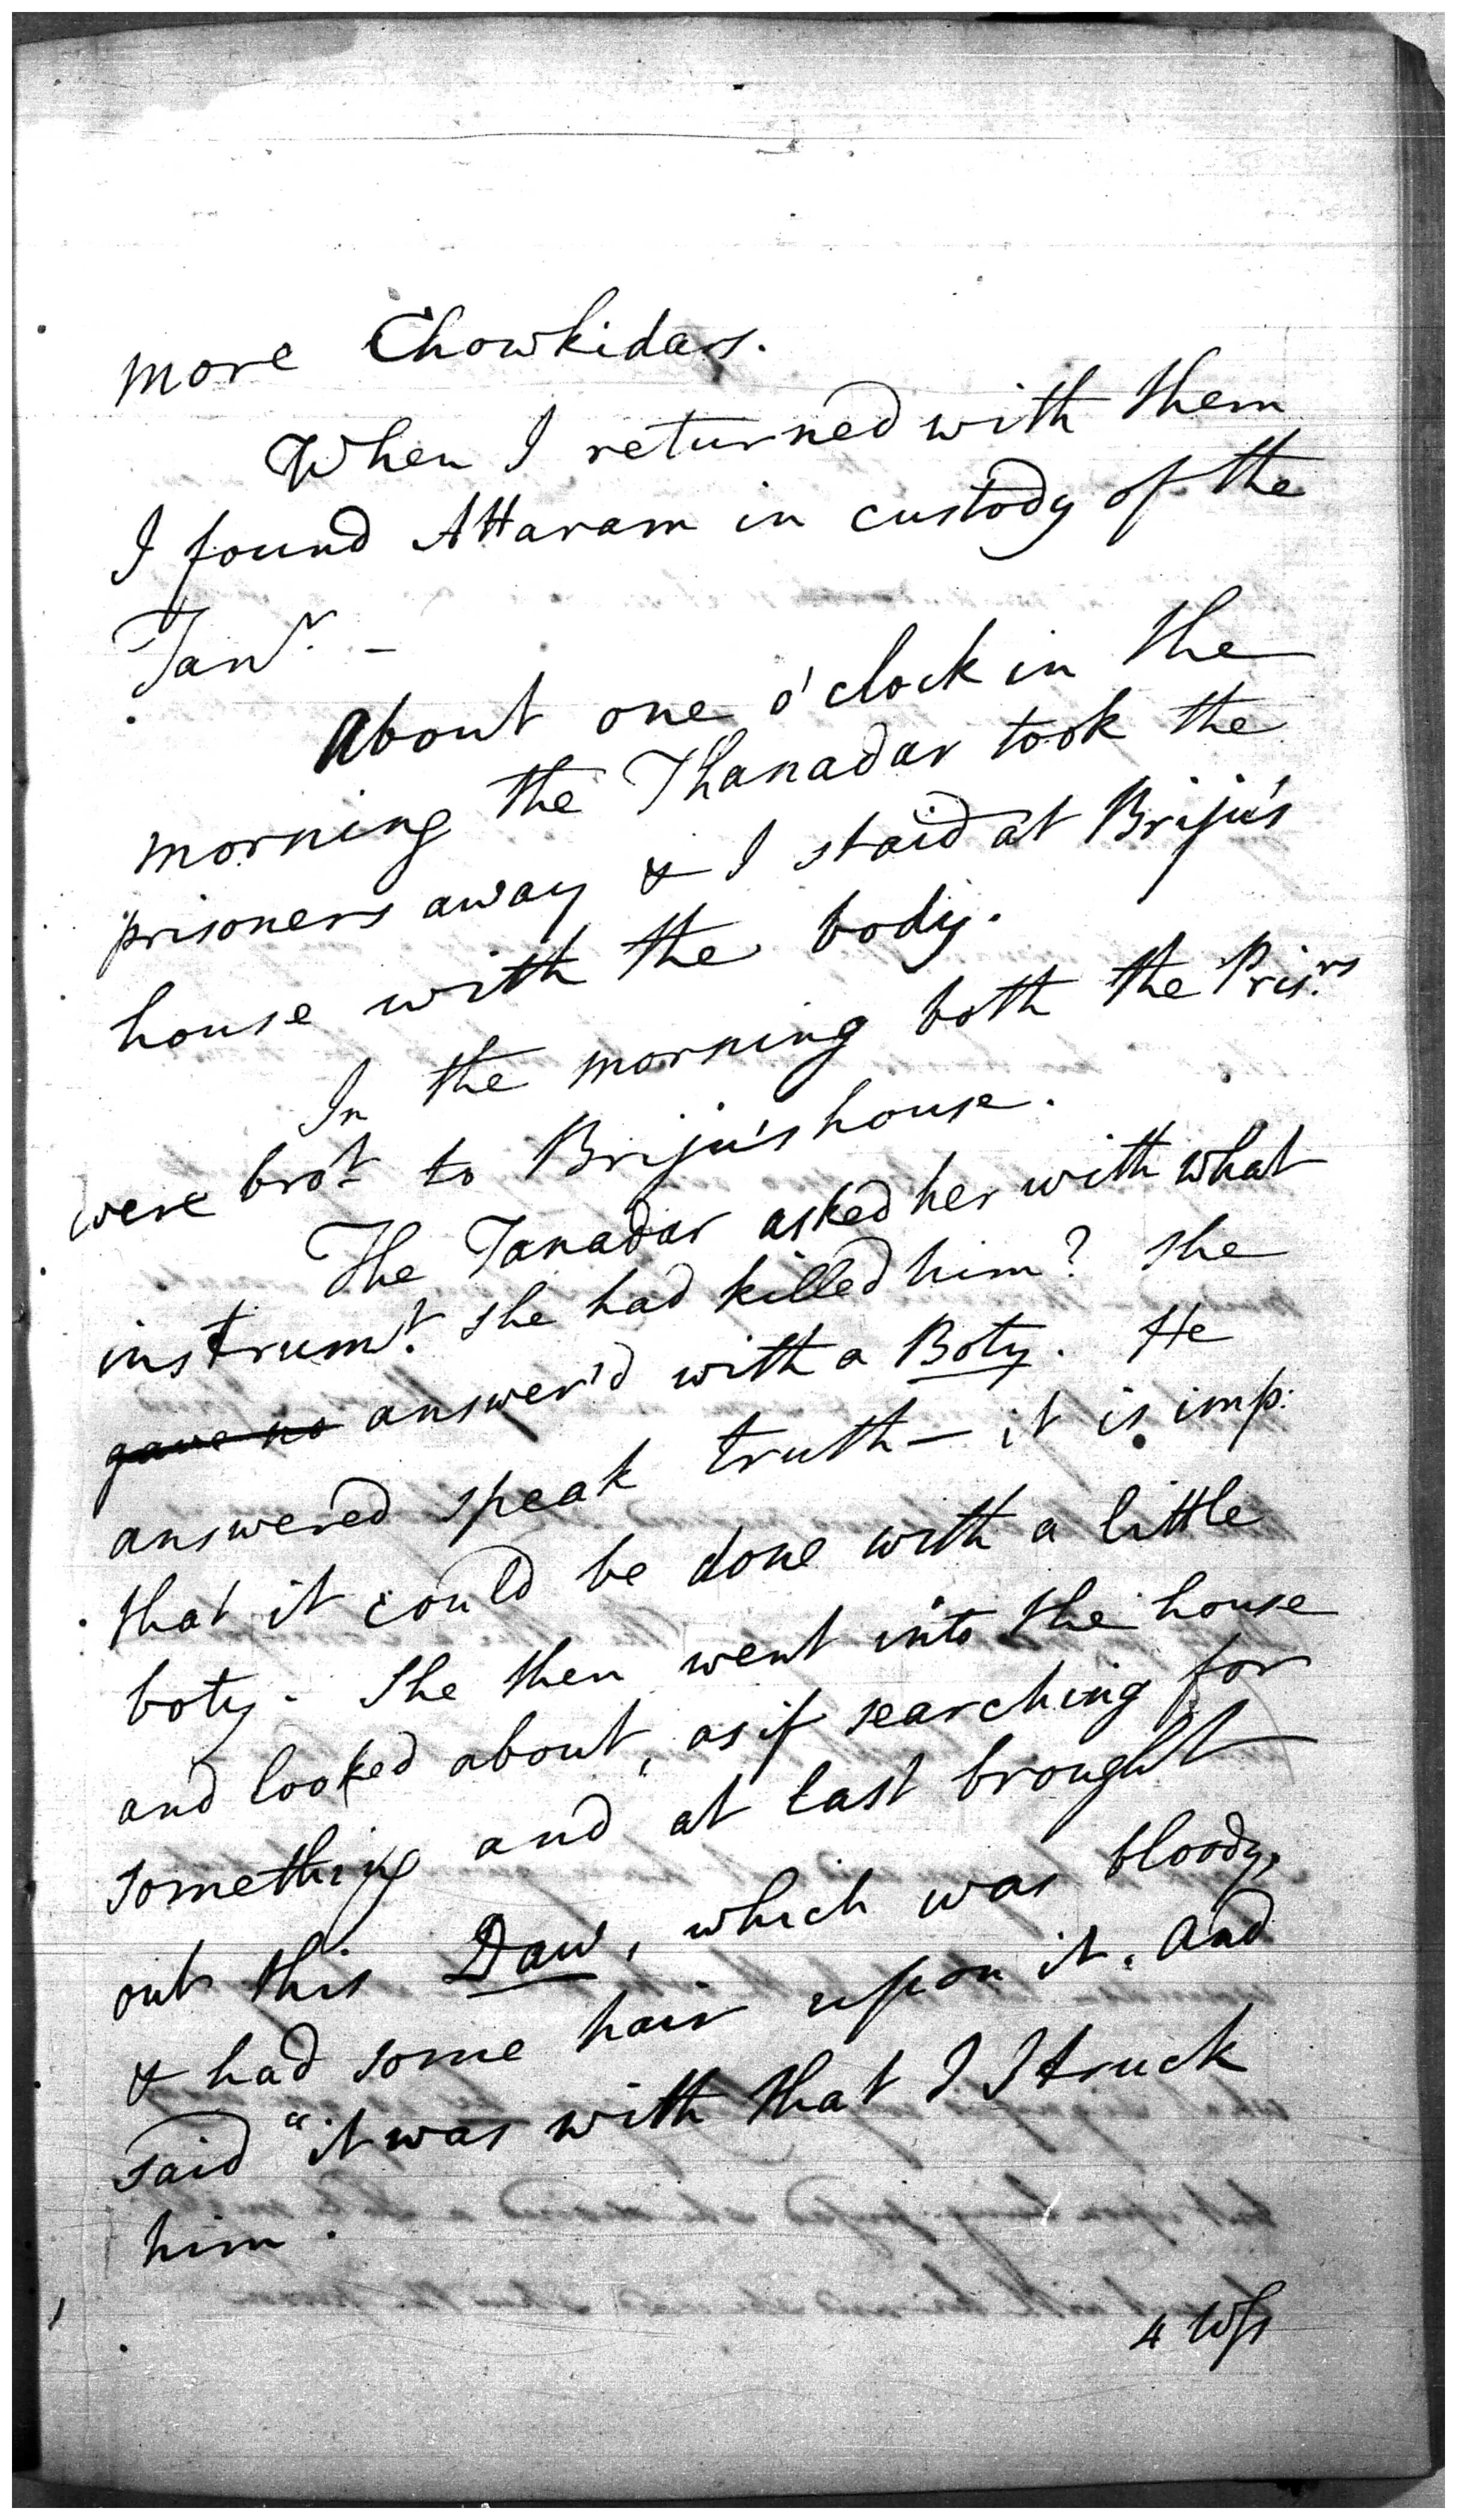 more Chowkidars.
When I returned with them
I found Attaram in custody of the
Tanr. -
About one o'clock in the
morning the Thanadar took the
prisoners away & I staid at Briju's
house with the body.
In the morning both the Prisrs
were brot to Briju's house.
The Tanadar asked her with what
instrumt. she had killed him? she
gave no answer'd with a Boty. He
answered speak truth - it is imp:
that it could be done with a little
boty. She then went into the house
and looked about, as if searching for
something and at last brought
out this Daw, which was bloody,
& had some hair upon it. And
said "it was with that I struck
him.
4 Wss